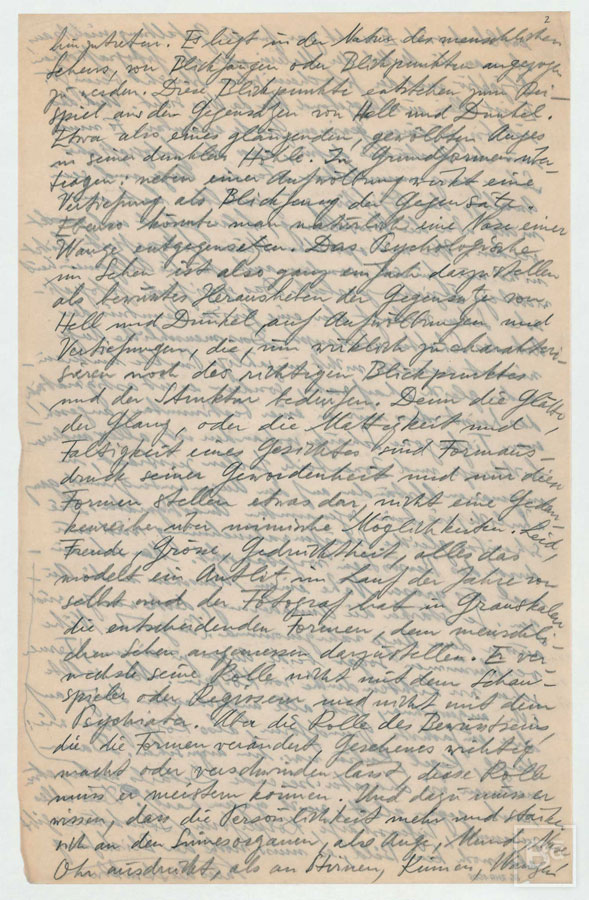 2
hinzutreten. Es liegt in der Natur des menschlichen
Sehens, von Blickfängen oder Blickpunkten angezogen
zu werden. Diese Blickpunkte entstehen zum Bei-
spiel aus den Gegensätzen von Hell und Dunkel.
Etwa also eines glänzenden, gewölbten Auges
in seiner dunklen Höhle. In Grundformen über-
tragen: neben einer Aufwölbung wirkt eine
Vertiefung als Blickfang der Gegensätze.
Ebenso könnte man natürlich eine Nase einer
Wange entgegensetzen. Das Psychologische
im Sehen ist also ganz einfach darzustellen
als bewusstes Herausheben der Gegensätze von
Hell und Dunkel, auf Aufwölbungen und
Vertiefungen, die, um wirklich zu charakteri-
sieren noch des richtigen Blickpunktes
und der Struktur bedürfen. Denn die Glätte,
der Glanz, oder die Mattigkeit und
Faltigkeit eines Gesichtes sind Formaus-
druck seiner Gewordenheit und nur diese
Formen stellen etwas dar, nicht eine Gedan-
kenreihe über mimische Möglichkeiten. Leid,
Freude, Grösse, Gedrücktheit, alles das
modelt ein Antlitz im Lauf der Jahre von
selbst und der Fotograf hat in Grauskalen
die entscheidenden Formen, dem menschli-
chen Sehen angemessen darzustellen. Er ver-
wechsle seine Rolle nicht mit dem Schau-
spieler oder Regisseur und nicht mit dem
Psychiater. Aber die Rolle des Bewusstseins,
die die Formen verändert, Gesehenes wichtig
macht oder verschwinden lässt, diese Rolle
muss er meistern können. Und dazu muss er
wissen, dass die Persönlichkeit mehr und stärker
sich an den Sinnesorganen, also Auge, Mund, Nase
Ohr ausdrückt, als an Stirnen, Kinnen, Wangen